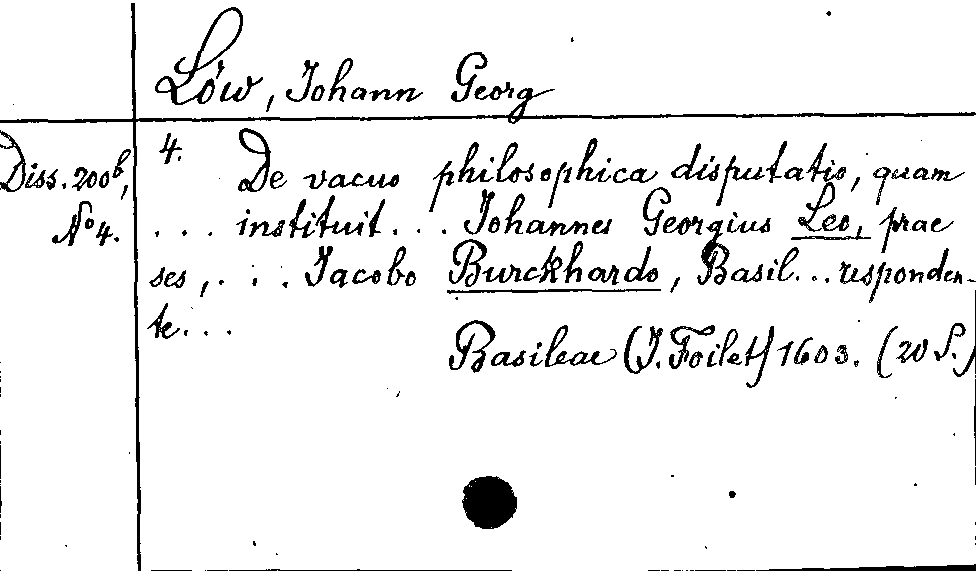 Löw, Johann Georg
Diss. 200b,
No 4.
4. De vacuo philosophica disputatio, quam
... instituit ... Johannes Georgius Leo, prae
ses, ... Jacobo Burckhardo, Basil... responden-
te...
Basileae (J. Foilet) 1603. (20 S.)